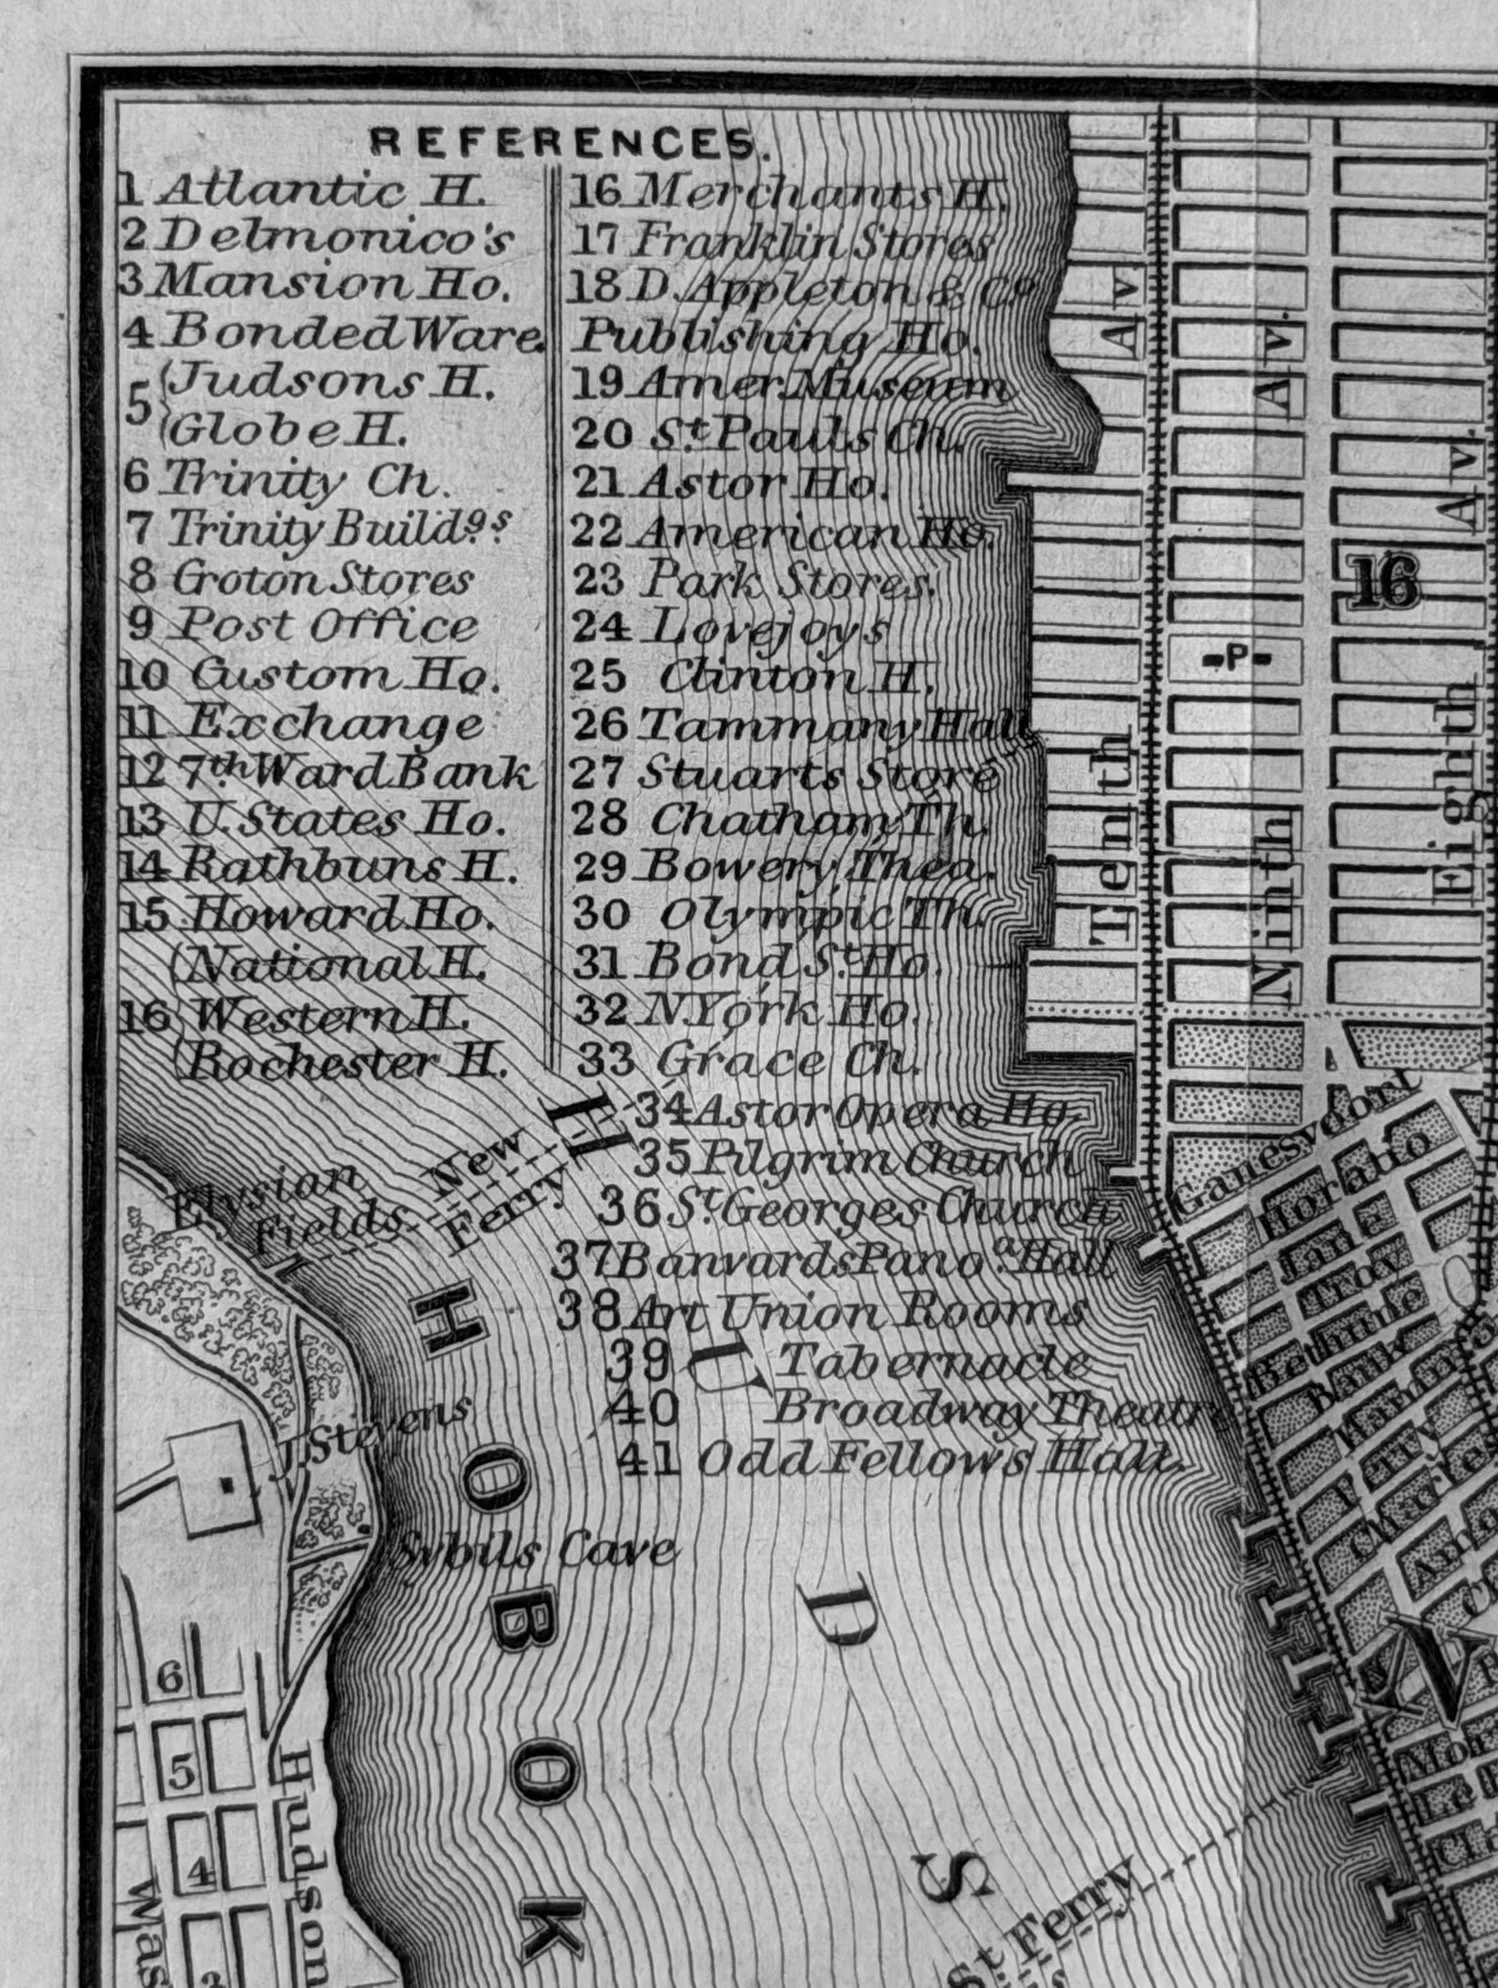 REFERENCES.
1 Atlantic H.
2 Delmonico's
3 Mansion Ho.
4 Bonded Ware.
5 Judsons H.
Globe H.
6 Trinity Ch.
7 Trinity Build.gs
8 Croton Stores
9 Post Office
10 Custom Ho.
11 Exchange
12 7th Ward Bank
13 U. States Ho.
14 Rathbuns H.
15 Howard Ho.
National H.
16 Western H.
Rochester H.
16 Merchants H.
17 Franklin Stores
18 D. Appleton & Co
Publishing Ho.
19 Amer. Museum
20 St. Pauls Ch.
21 Astor Ho.
22 American Ho.
23 Park Stores.
24 Lovejoys
25 Clinton H.
26 Tammany Hall
27 Stuarts Store
28 Chatham Th.
29 Bowery Thea.
30 Olympic Th.
31 Bond St. Ho.
32 N. York Ho.
33 Grace Ch.
34 Astor Opera Ho.
35 Pilgrim Church
36 St. Georges Church
37 Banvards Panoa. Hall
38 Art Union Rooms
39 Tabernacle
40 Broadway Theatre
41 Odd Fellows Hall.
Tenth Av
Ninth Av.
Eighth Av.
16
P
Elysian
Fields.
New
Ferry
H
U
D
S
HOBOK
J. Stevens
Sybils Cave
6
5
4
Hudson
Was
St. Ferry
Gansevoort
Horatio
Jane
Troy
Bethune
Bank
Perry
Charles